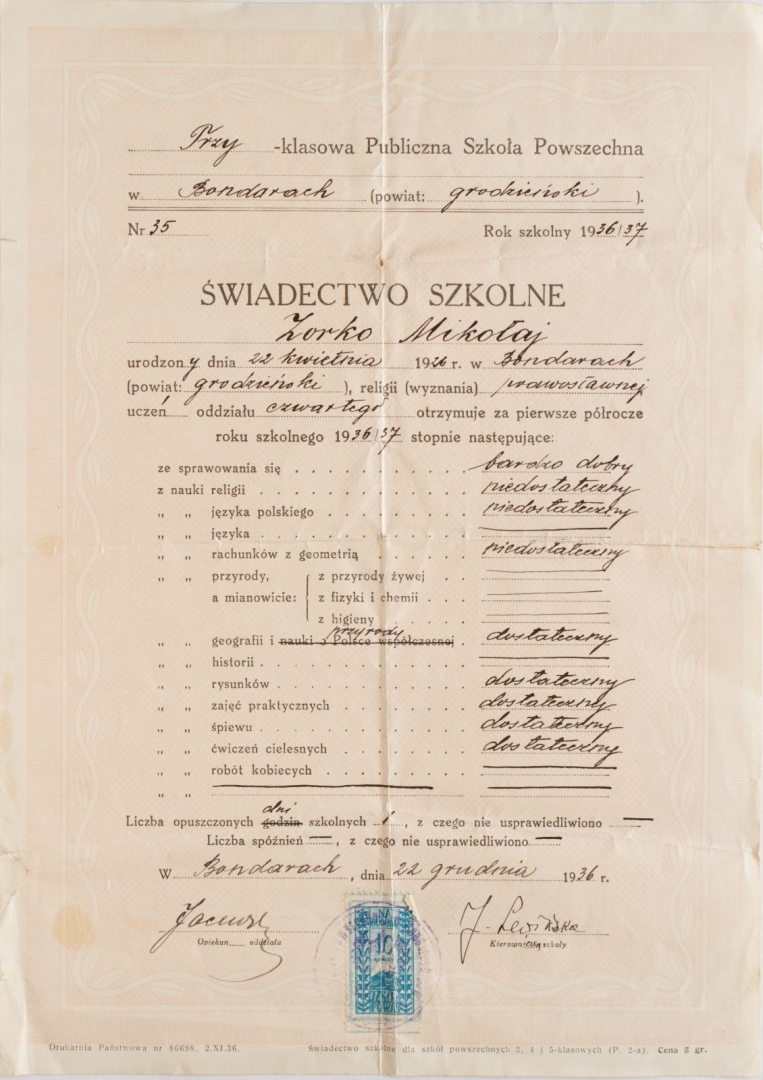 Trzy -klasowa Publiczna Szkoła Powszechna
w Bondarach (powiat: grodzieński ).
Nr 35 Rok szkolny 1936/37
ŚWIADECTWO SZKOLNE
Zorko Mikołaj
urodzony dnia 22 kwietnia 1926 r. w Bondarach
(powiat: grodzieński ), religii (wyznania) prawosławnej
uczeń oddziału czwartego otrzymuje za pierwsze półrocze
roku szkolnego 1936/37 stopnie następujące:
ze sprawowania się bardzo dobry
z nauki religii niedostateczny
„ „ języka polskiego niedostateczny
„ „ języka
„ „ rachunków z geometrią niedostateczny
„ „ przyrody, z przyrody żywej
a mianowicie: z fizyki i chemii
z higieny
przyrody
„ „ geografii i nauki o Polsce współczesnej dostateczny
„ „ historii
„ „ rysunków dostateczny
„ „ zajęć praktycznych dostateczny
„ „ śpiewu dostateczny
„ „ ćwiczeń cielesnych dostateczny
„ „ robót kobiecych
„ „
dni
Liczba opuszczonych godzin szkolnych 1, z czego nie usprawiedliwiono —
Liczba spóźnień —, z czego nie usprawiedliwiono —
W Bondarach, dnia 22 grudnia 1936 r.
J. Lewińska
Opiekun oddziału Kierowniczka szkoły
NA
10
Drukarnia Państwowa nr 86698. 2.XI.36. Świadectwo szkolne dla szkół powszechnych 3, 4 i 5-klasowych (P. 2-a). Cena 8 gr.